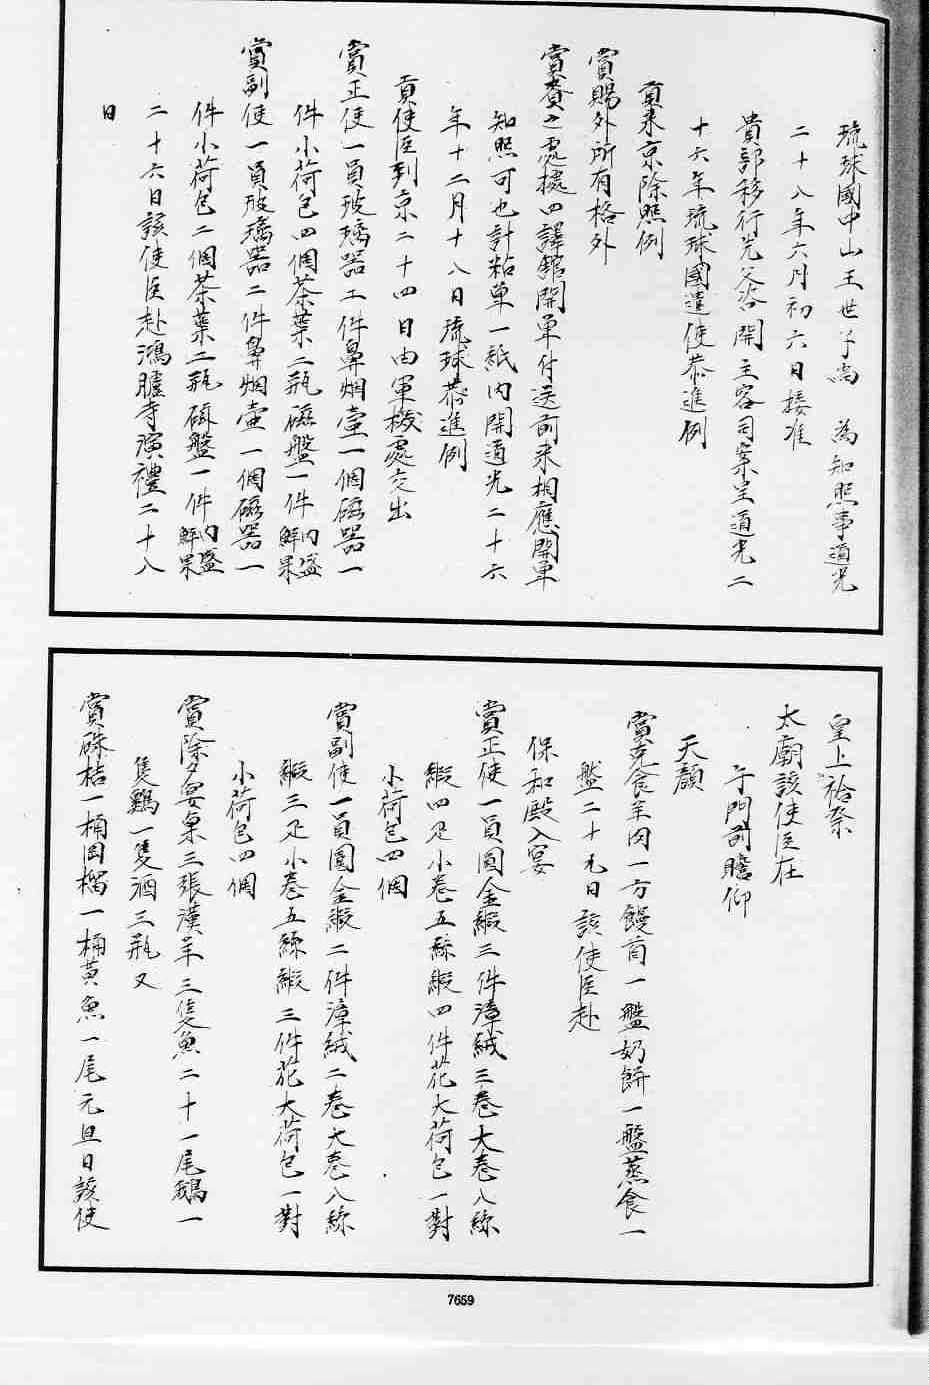 琉球國中山王世子尚　為知照事道光
二十八年六月初六日接准
貴部移行先父咨開主客司案呈道光二
十六年琉球國遣使恭進例
貢來京除照例
賞賜外所有格外
賞賚之處據四譯館開單付送前來相應開單
知照可也計粘單一紙內開道光二十六
年十二月十八日琉球恭進例
貢使臣到京二十四日由軍機處交出
賞正使一員玻璃器二件鼻烟壺一個磁器一
件小荷包四個茶葉二瓶磁盤一件內盛鮮果
賞副使一員玻璃器二件鼻烟壺一個磁器一
件小荷包二個茶葉二瓶磁盤一件內盛鮮果
二十六日該使臣赴鴻臚寺演禮二十八
日
皇上祫祭
太廟該使臣在
午門前瞻仰
天顏
賞克食羊肉一方饅首一盤奶餅一盤蒸食一
盤二十九日該使臣赴
保和殿入宴
賞正使一員圓金緞三件漳絨三卷大卷八絲
緞四疋小卷五絲緞四件花大荷包一對
小荷包四個
賞副使一員圓金緞二件漳絨二卷大卷八絲
緞三疋小卷五絲緞三件花大荷包一對
小荷包四個
賞除夕宴桌三張漢羊三隻魚二十一尾鵝一
隻鷄一隻酒三瓶又
賞硃桔一桶岡榴一桶黃魚一尾元旦日該使
7659